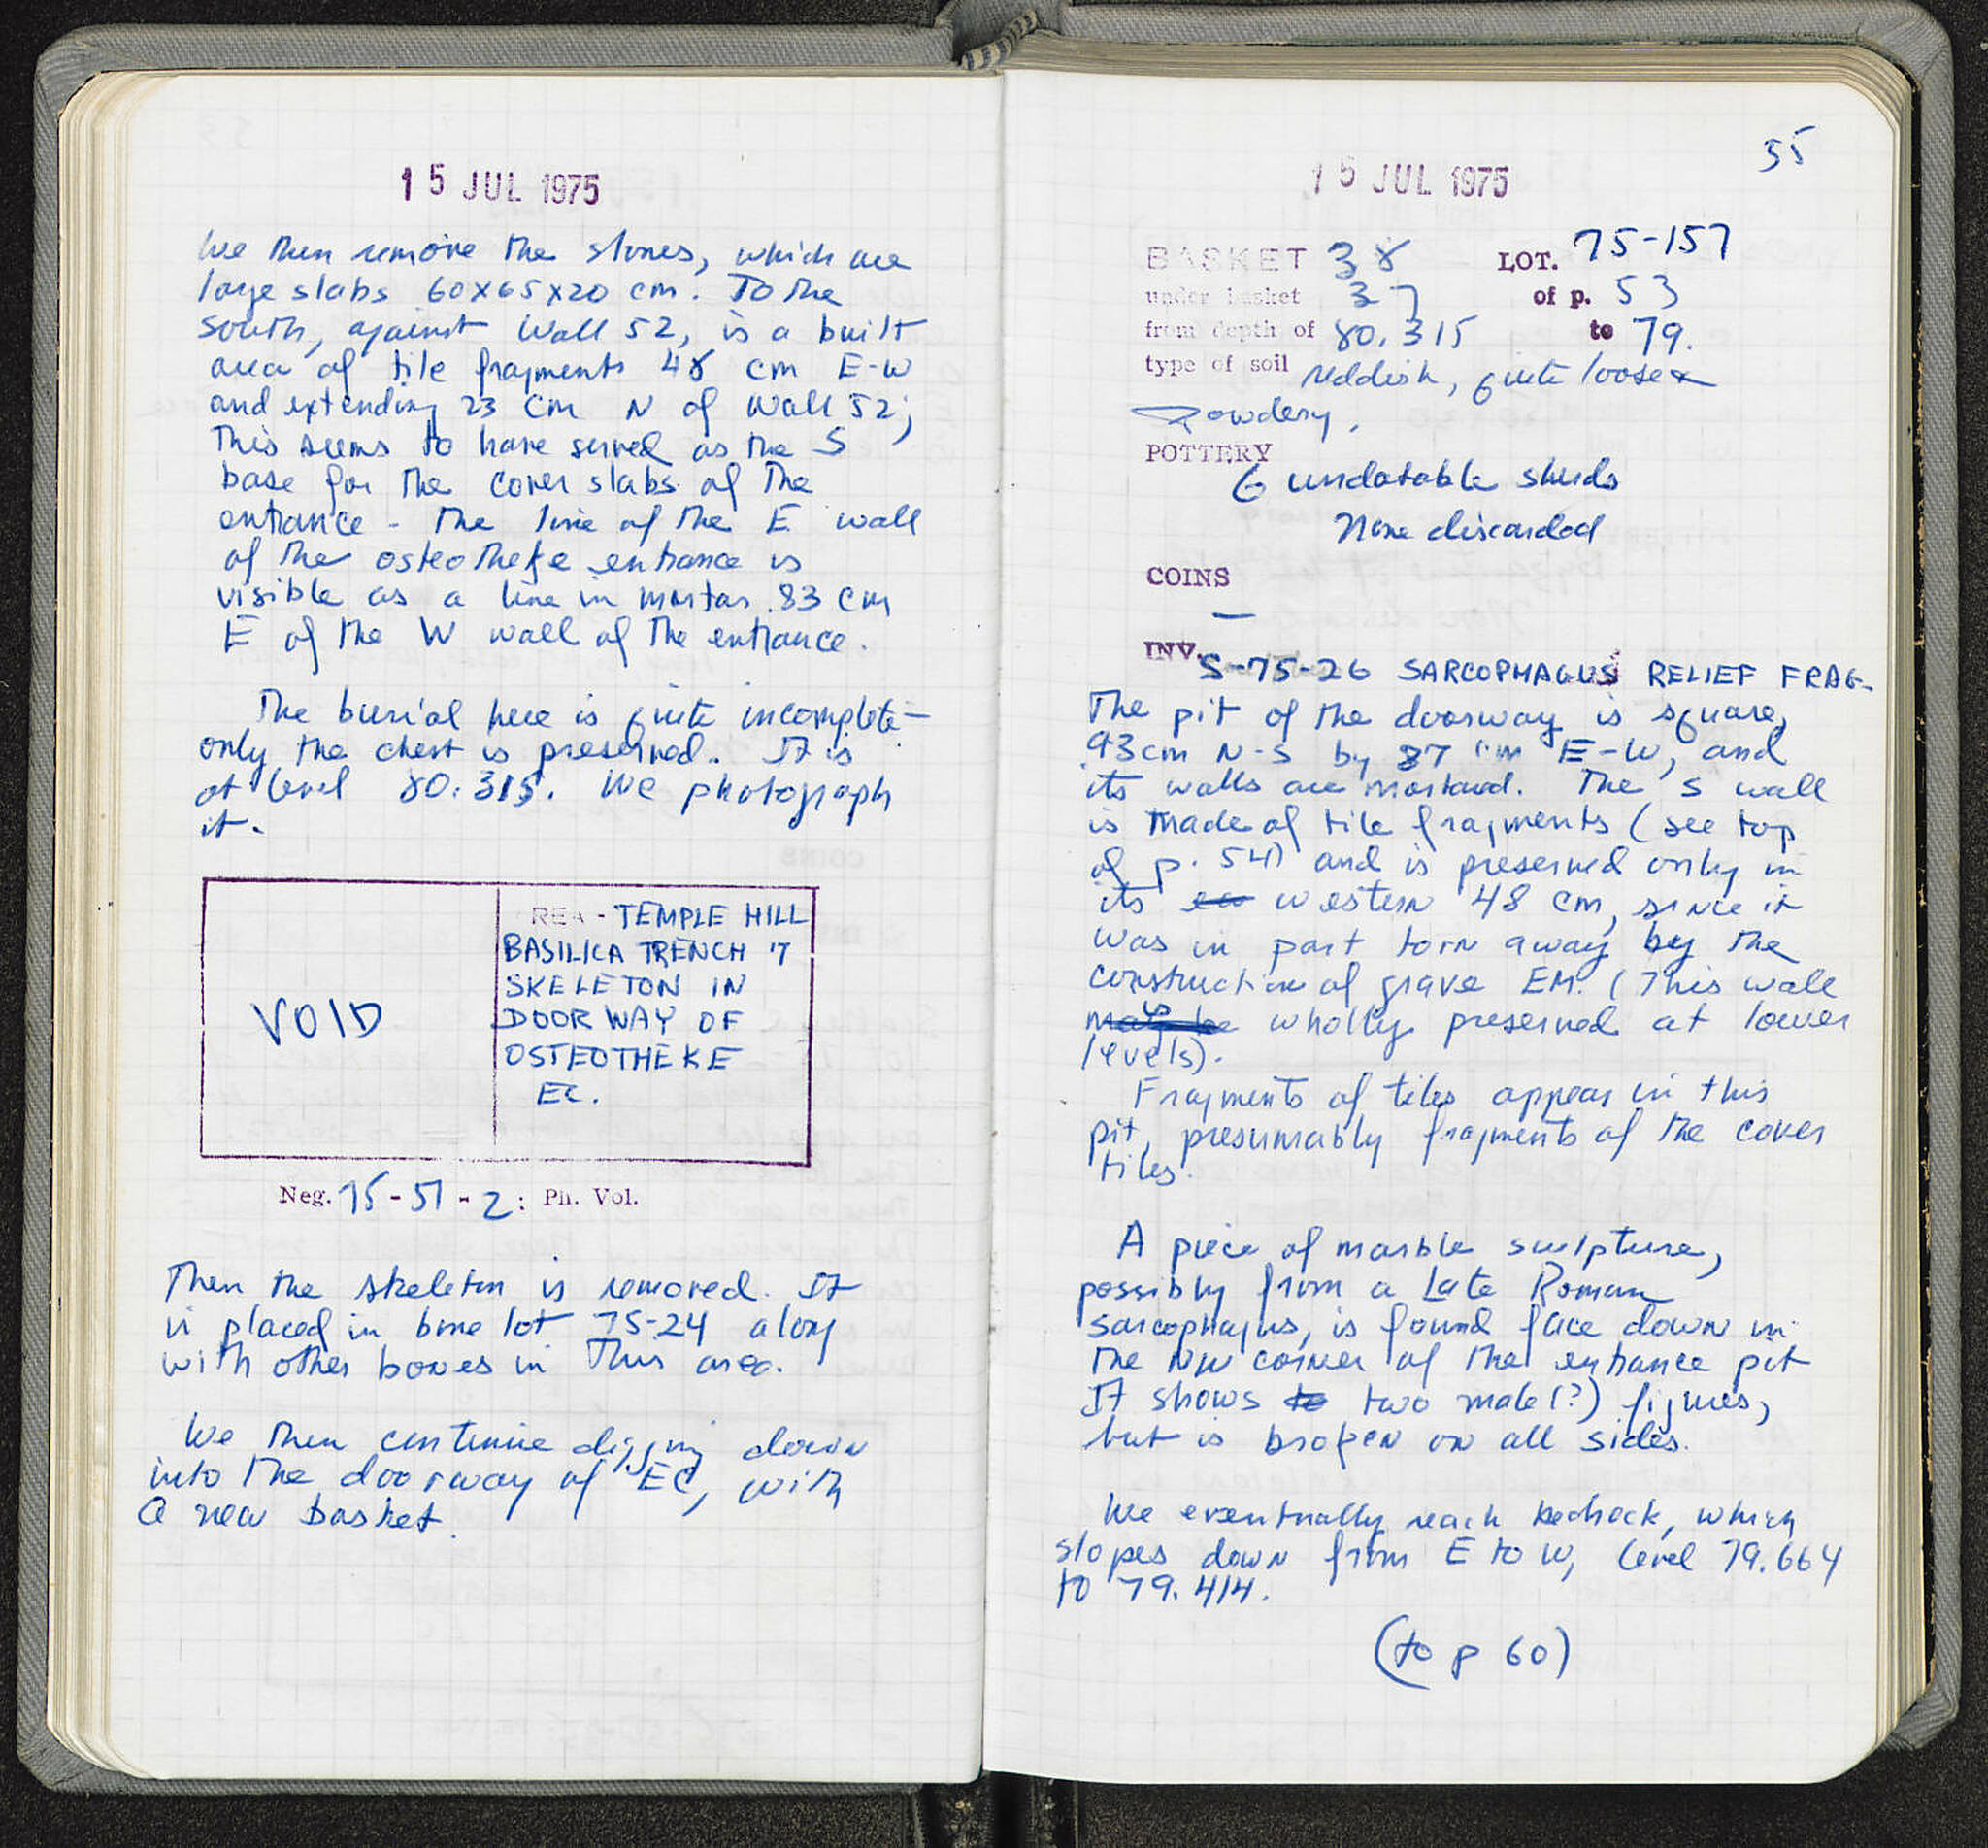 15 JUL 1975
We then remove the stones, which are
large slabs 60x65x20 cm. To the
south, against Wall 52, is a built
area of tile fragments 48 cm E-W
and extending 23 cm N of Wall 52;
This seems to have served as the S
base for the cover slabs of the
entrance - the line of the E wall
of the osteotheke entrance is
visible as a line in mortar .83 cm
E of the W wall of the entrance.
The burial here is quite incomplete -
only the chest is preserved. It is
at level 80.315. We photograph
it.
REA - TEMPLE HILL
BASILICA TRENCH 7
SKELETON IN
DOORWAY OF
OSTEOTHEKE
EC.
VOID
Neg. 75-51-2 : Ph. Vol.
Then the skeleton is removed. It
is placed in bone lot 75-24 along
with other bones in this area.
We then continue digging down
into the doorway of EC, with
a new basket.
55
15 JUL 1975
BASKET 38 LOT. 75-157
under basket 37 of p. 53
from depth of 80.315 to 79.
type of soil reddish, quite loose &
powdery.
POTTERY
6 undatable sherds
None discarded
COINS
—
INV. S-75-26 SARCOPHAGUS RELIEF FRAG.
The pit of the doorway is square,
.93cm N-S by 87 cm E-W, and
its walls are mortared. The S wall
is made of tile fragments (see top
of p. 54) and is preserved only in
its ea western 48 cm, since it
was in part torn away by the
construction of grave EM. (This wall
may be wholly preserved at lower
levels).
Fragments of tiles appear in this
pit, presumably fragments of the cover
tiles.
A piece of marble sculpture,
possibly from a Late Roman
sarcophagus, is found face down in
the NW corner of the entrance pit
It shows to two male(?) figures,
but is broken on all sides.
We eventually reach bedrock, which
slopes down from E to W, level 79.664
to 79.414.
(to p 60)